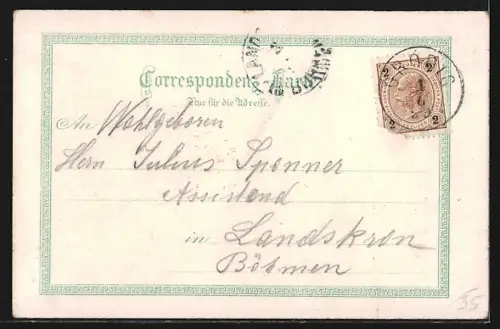 Correspondenz-Karte
Nur für die Adresse.
An Wohlgeboren
Herrn Julius Sponner
Assistend
in Landskron
Böhmen
2 2
2 2
35